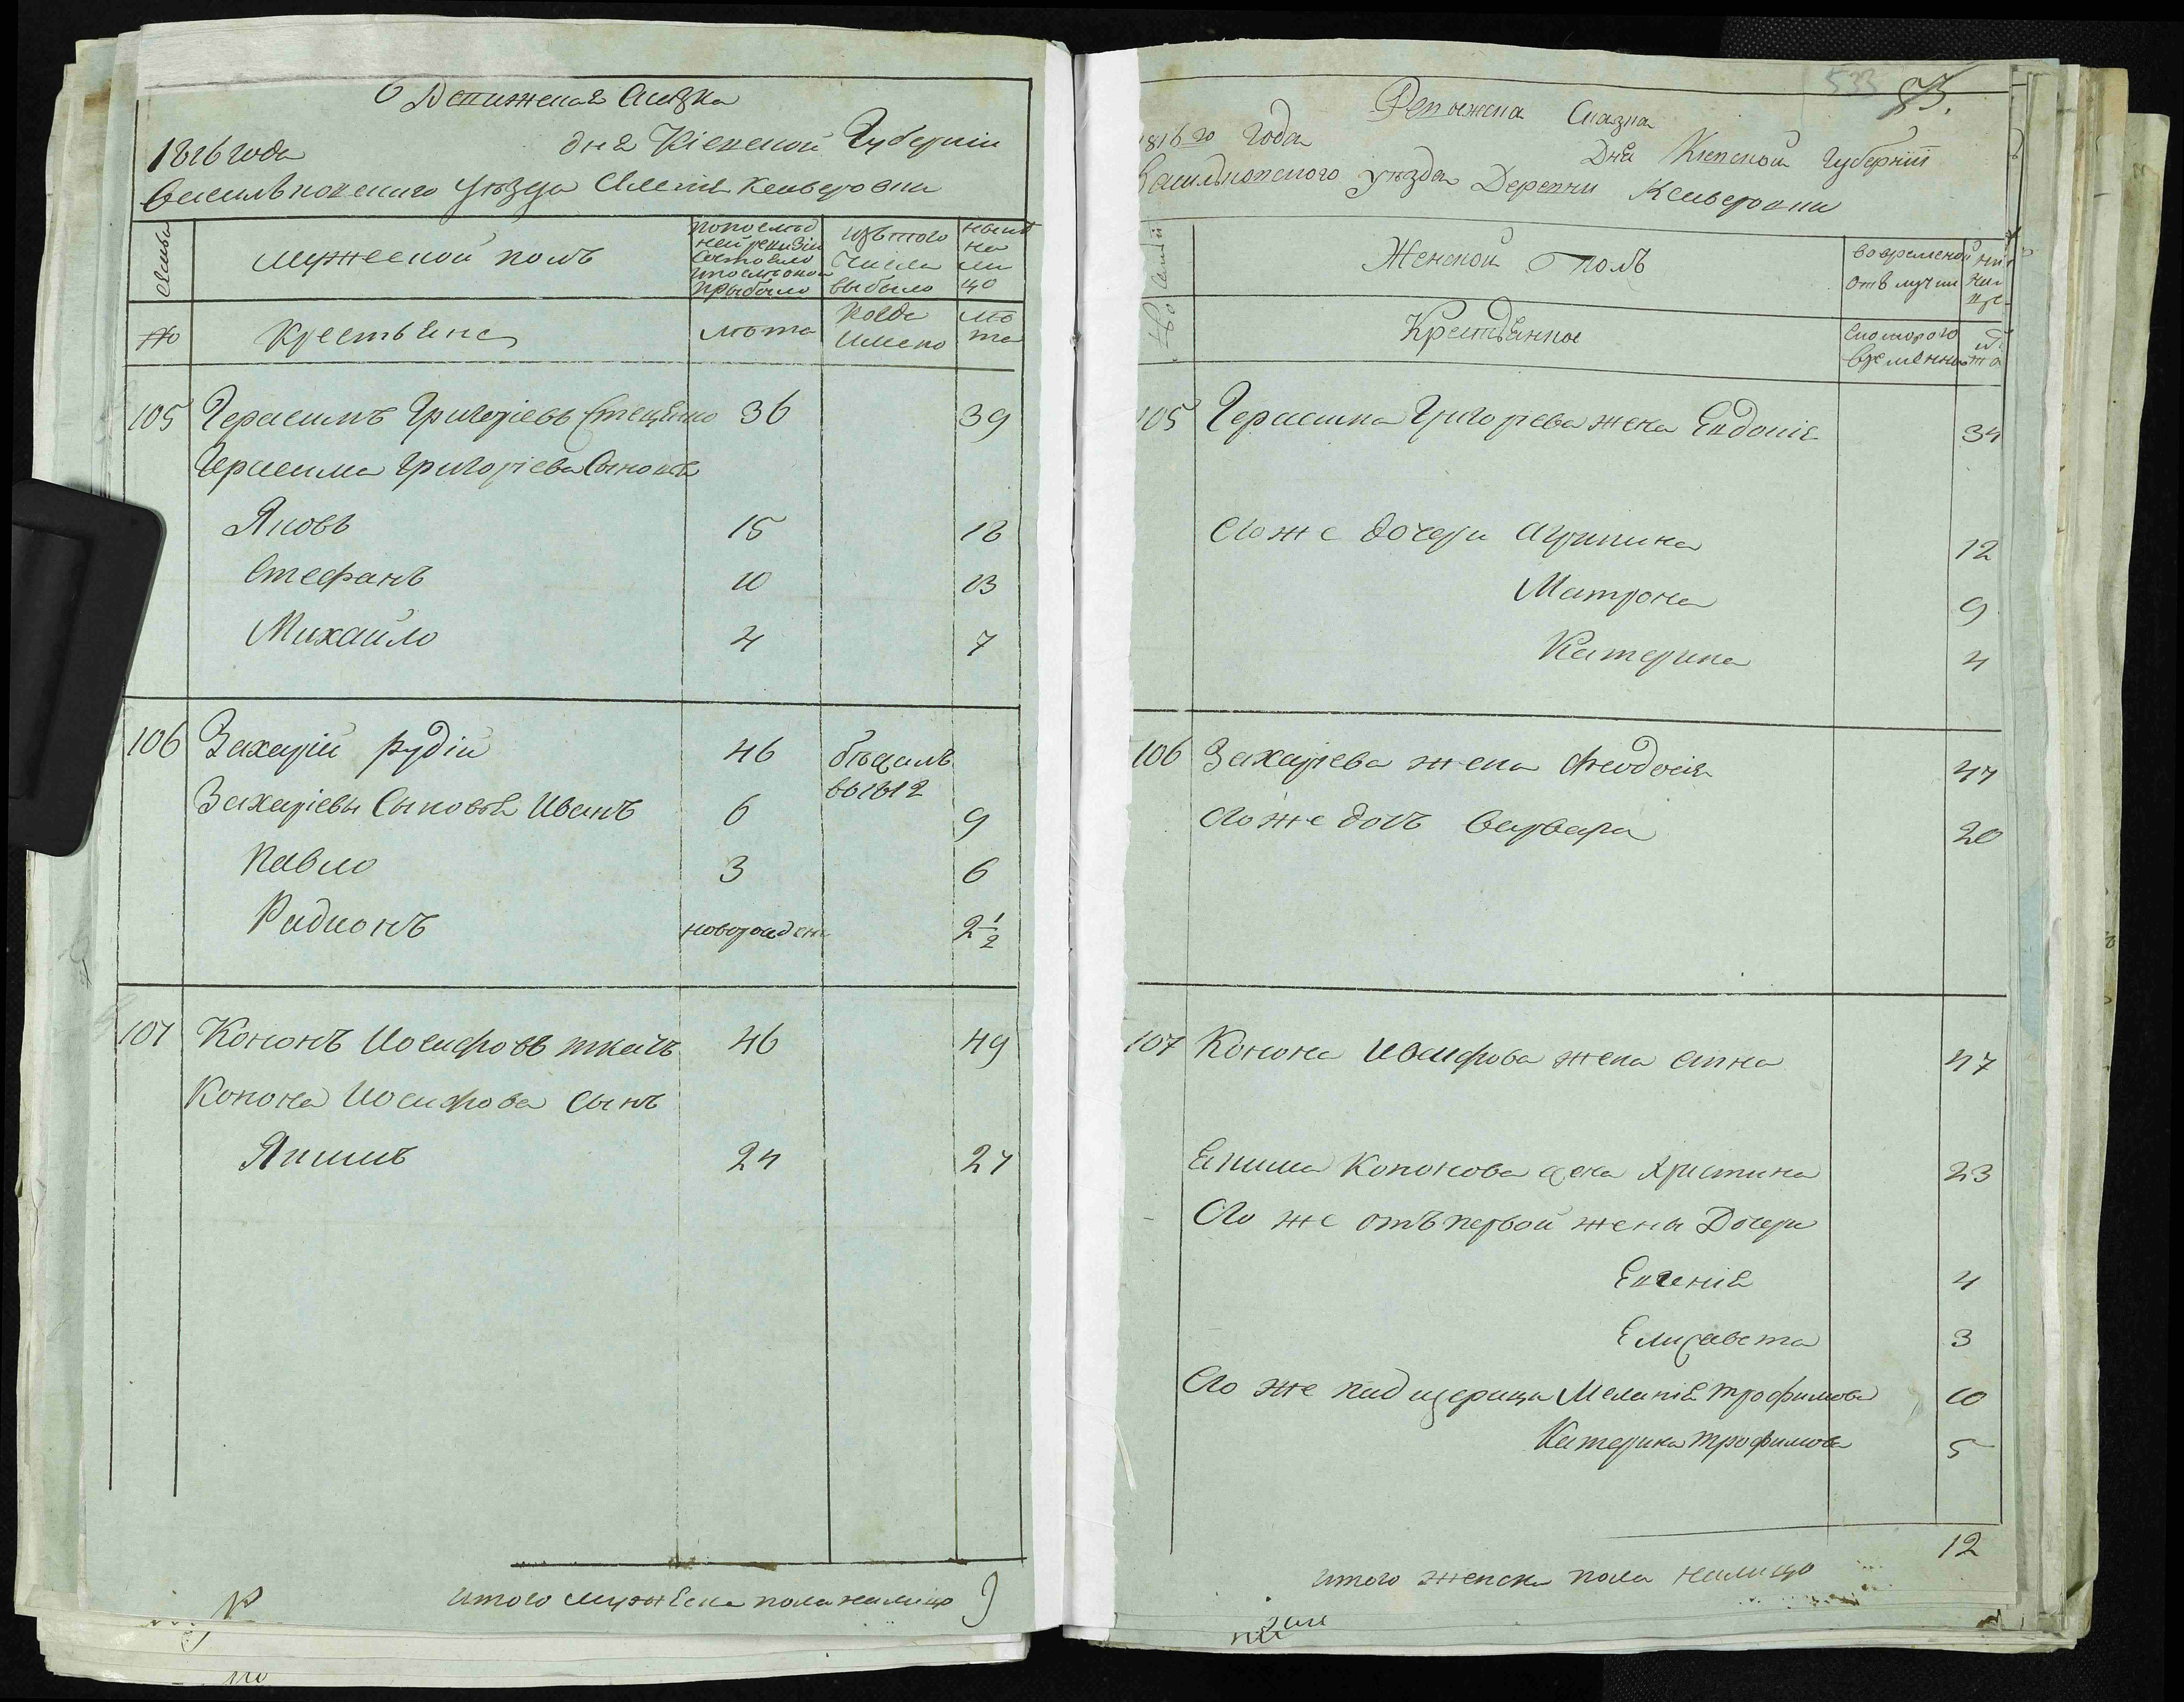 Ревижская Сказка
1816 года дня Кіевской Губерніи
Васильковского уѣзда
Семьи
мужеской полъ
по послѣд
ней ревизіи
состояло
и послѣ оной
прыбыло
изъ того
числа
выбыло
нынѣ
на
ли
цо
№
Крестьяне
лѣта
когда
имено
лѣ
та
105 Герасимъ Григоріевъ Стеценко 36 39
Герасима Григоріева Сыновья
Яковъ 15 18
Стефанъ 10 13
Михайло 4 7
106 Захарій рудій 46 бѣжалъ
в 1812
Захаріевы Сыновья Иванъ 6 9
Павло 3 6
Радионъ новорожден 2 1/2
107 Кононъ Иосифовъ ткачъ 46 49
Конона Иосифова Сынъ
Якимъ 24 27
итого мужеска пола налицо 9
533 83.
Ревижска Сказка
1816го года Дня Кіевской Губерніи
Васильковского уѣзда Деревни
Женской полъ
во временой
отлучки
Крестьянки
с которого
времени
105 Герасима Григорева жена Евдокія 34
Его же дочери Агрипина 12
Матрона 9
Катерина 4
106 Захарiева жена Феодосія 47
Его же дочъ Варвара 20
107 Конона Иосифова жена Анна 47
Екима Кононова жена Христина 23
Его же отъ первой жены Дочери
Евгенія 4
Елисавета 3
Его же падщерица Меланія Трофимова 10
Катерина Трофимова 5
12
итого женска пола налицо